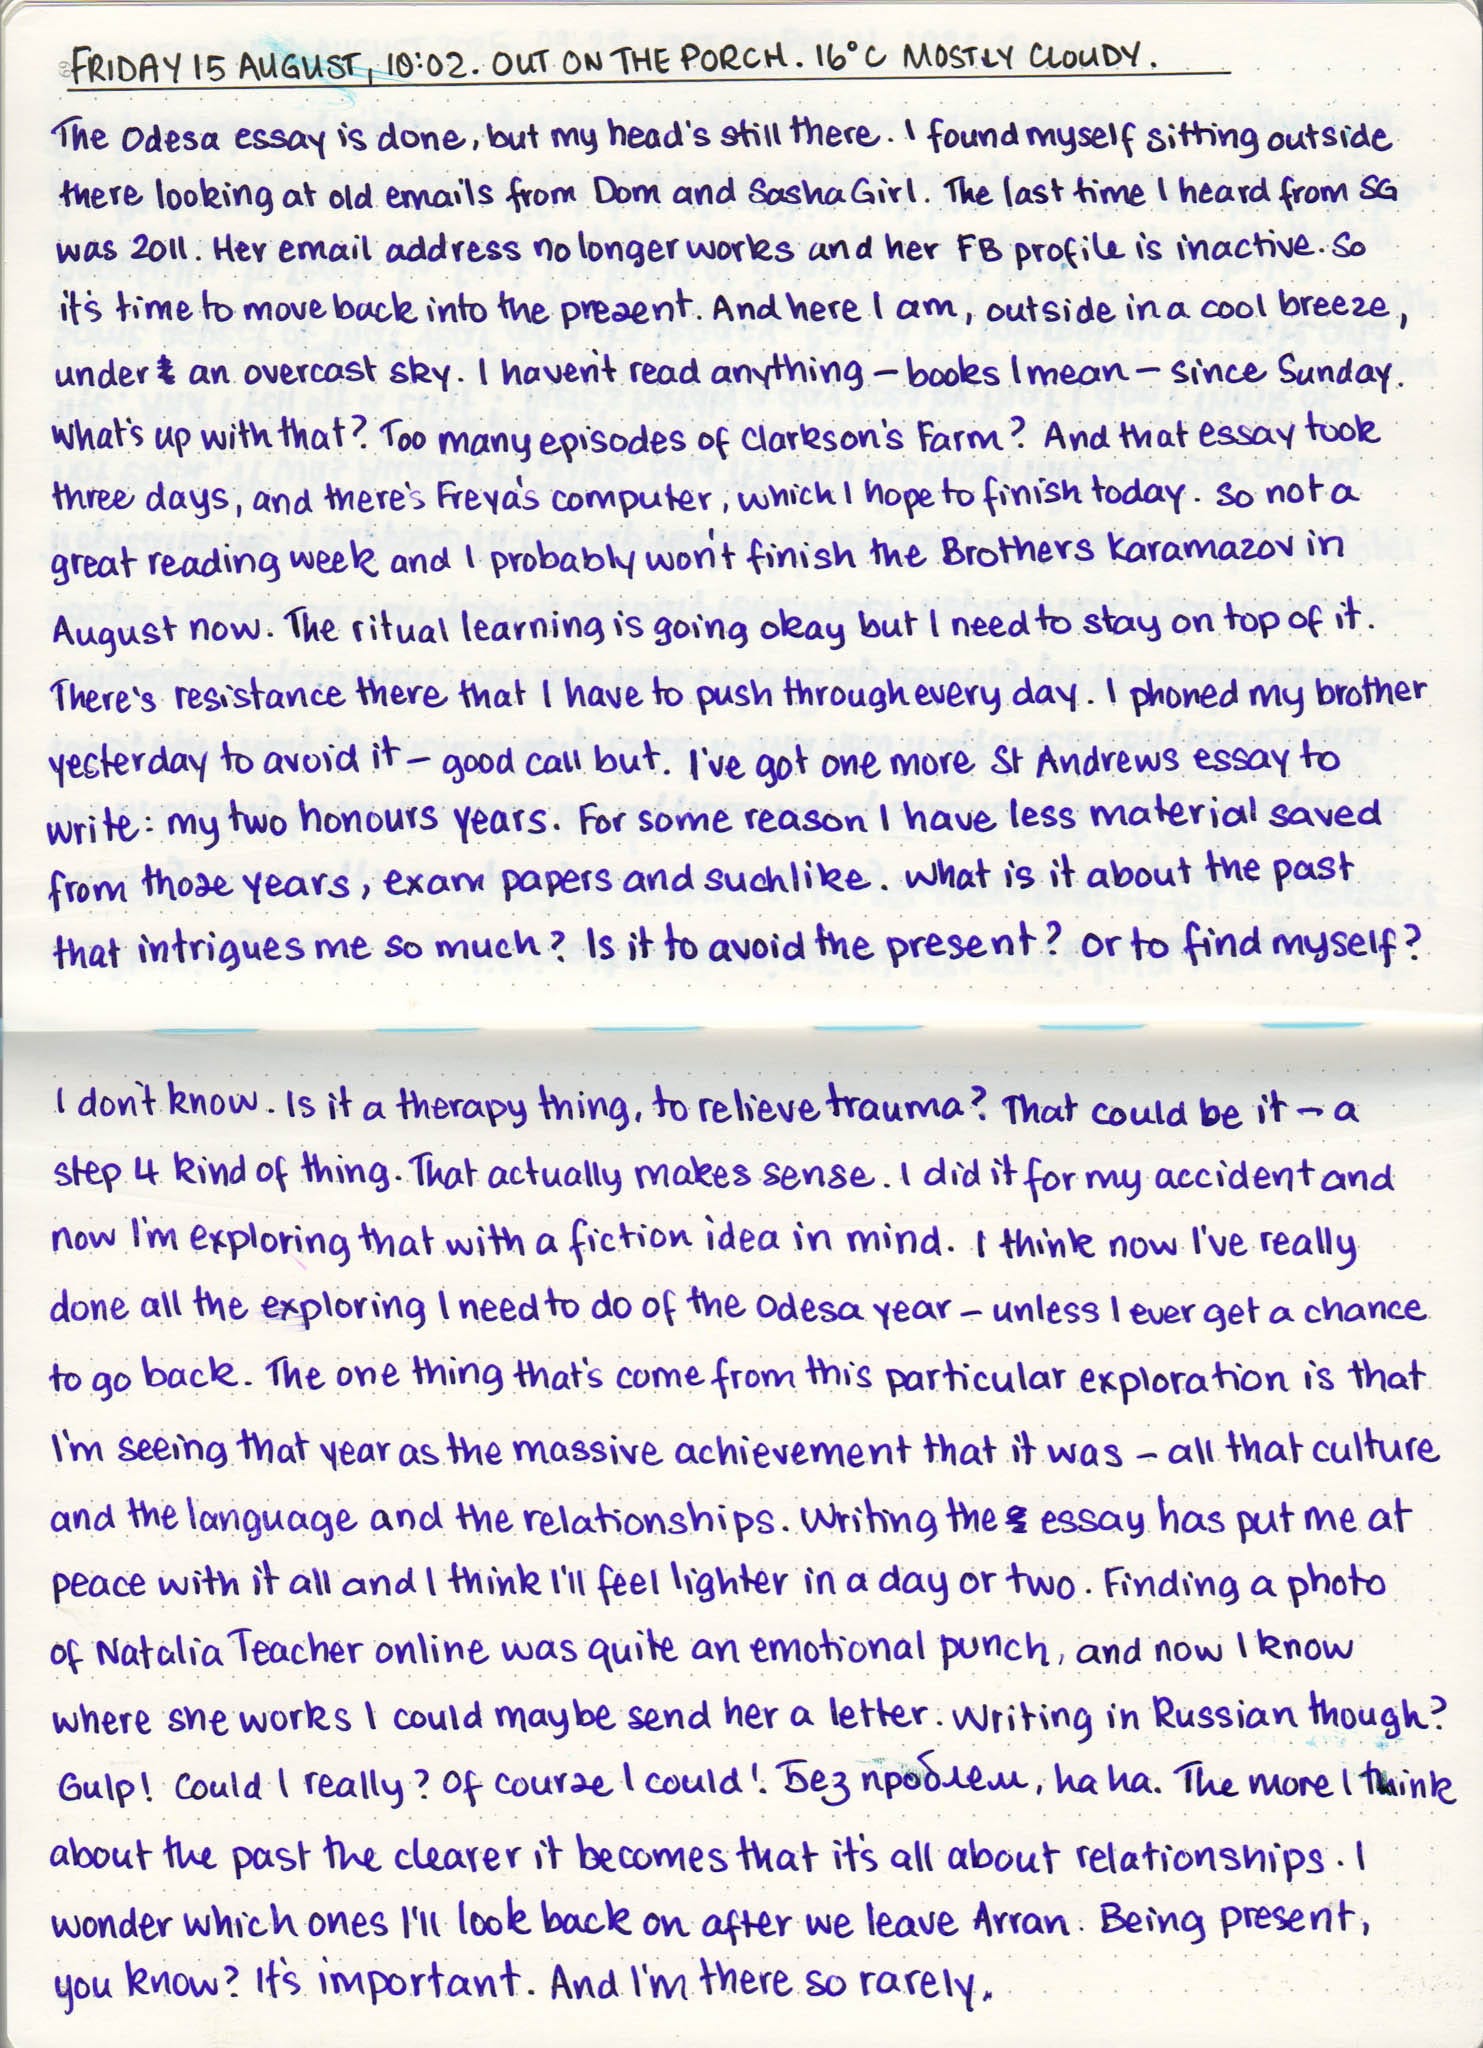 FRIDAY 15 AUGUST, 10:02. OUT ON THE PORCH. 16°C MOSTLY CLOUDY.
The Odesa essay is done, but my head's still there. I found myself sitting outside
there looking at old emails from Dom and SashaGirl. The last time I heard from SG
was 2011. Her email address no longer works and her FB profile is inactive. So
it's time to move back into the present. And here I am, outside in a cool breeze,
under an overcast sky. I haven't read anything – books I mean – since Sunday.
What's up with that? Too many episodes of Clarkson's Farm? And that essay took
three days, and there's Freya's computer, which I hope to finish today. So not a
great reading week and I probably won't finish the Brothers Karamazov in
August now. The ritual learning is going okay but I need to stay on top of it.
There's resistance there that I have to push through every day. I phoned my brother
yesterday to avoid it – good call but. I've got one more St Andrews essay to
write: my two honours years. For some reason I have less material saved
from those years, exam papers and suchlike. What is it about the past
that intrigues me so much? Is it to avoid the present? Or to find myself?
I don't know. Is it a therapy thing, to relieve trauma? That could be it – a
step 4 kind of thing. That actually makes sense. I did it for my accident and
now I'm exploring that with a fiction idea in mind. I think now I've really
done all the exploring I need to do of the Odesa year – unless I ever get a chance
to go back. The one thing that's come from this particular exploration is that
I'm seeing that year as the massive achievement that it was – all that culture
and the language and the relationships. Writing the essay has put me at
peace with it all and I think I'll feel lighter in a day or two. Finding a photo
of Natalia Teacher online was quite an emotional punch, and now I know
where she works I could maybe send her a letter. Writing in Russian though?
Gulp! Could I really? Of course I could! Без проблем, ha ha. The more I think
about the past the clearer it becomes that it's all about relationships. I
wonder which ones I'll look back on after we leave Arran. Being present,
you know? It's important. And I'm there so rarely.